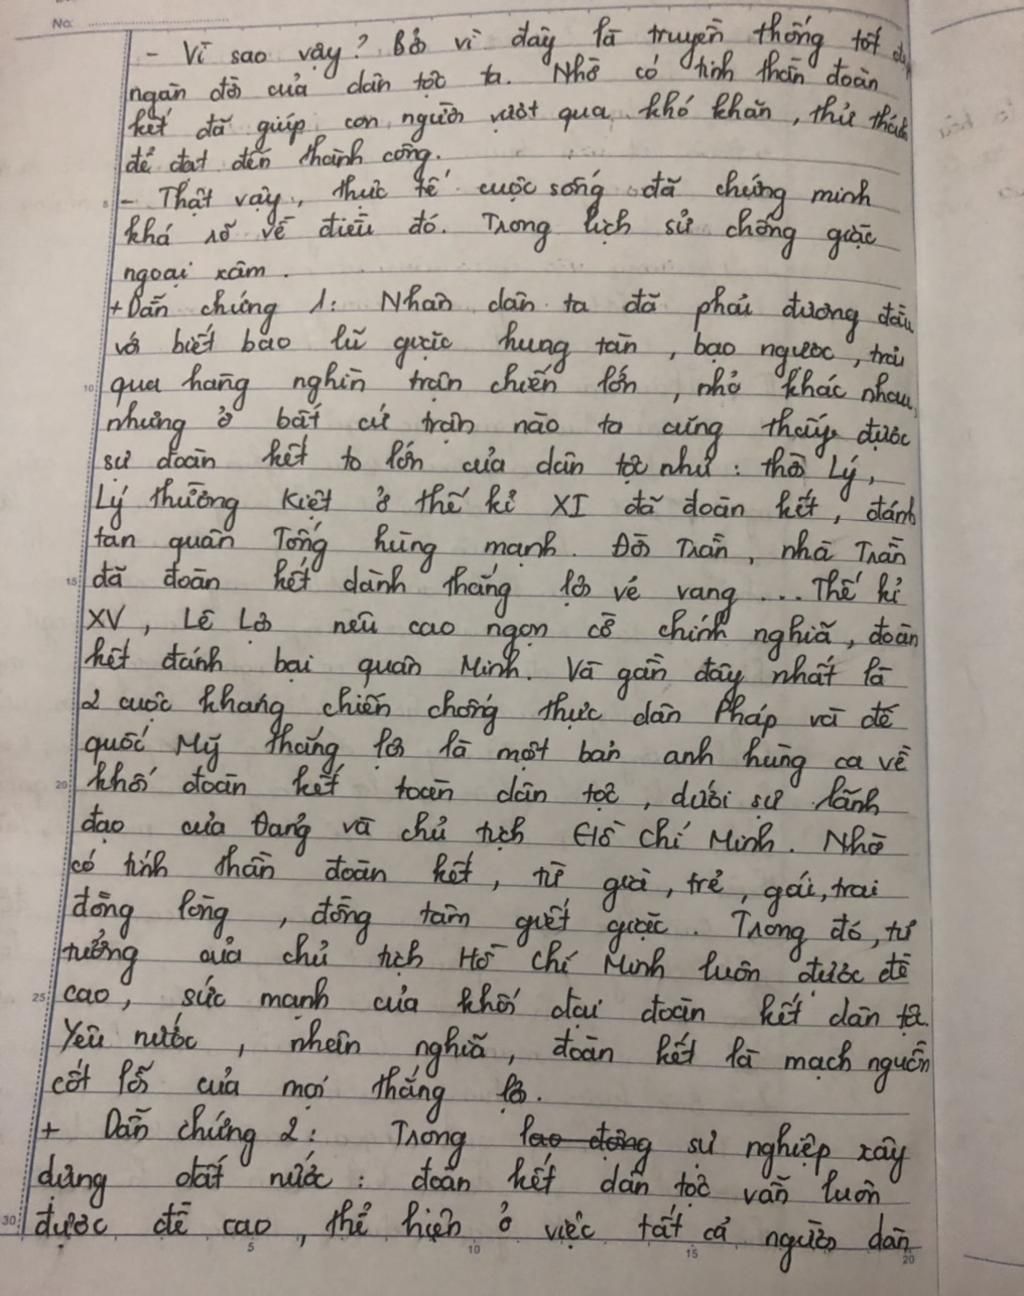 No.
- Vì sao vậy? Bởi vì đây là truyền thống tốt
ngàn đời của dân tộc ta. Nhờ có tinh thần đoàn
kết đã giúp con người vượt qua khó khăn, thử thách
để đạt đến thành công.
- Thật vậy, thực tế cuộc sống đã chứng minh
khá rõ về điều đó. Trong lịch sử chống giặc
ngoại xâm.
+ Dẫn chứng 1: Nhân dân ta đã phải đương đầu
với biết bao lũ giặc hung tàn, bạo ngược, trải
qua hàng nghìn trận chiến lớn, nhỏ khác nhau,
nhưng ở bất cứ trận nào ta cũng thấy được
sự đoàn kết to lớn của dân tộc như: thời Lý,
Lý Thường Kiệt ở thế kỉ XI đã đoàn kết, đánh
tan quân Tống hùng mạnh. Đời Trần, nhà Trần
đã đoàn kết dành thắng lợi vẻ vang ... Thế kỉ
XV, Lê Lợi nêu cao ngọn cờ chính nghĩa, đoàn
kết đánh bại quân Minh. Và gần đây nhất là
2 cuộc kháng chiến chống thực dân Pháp và đế
quốc Mỹ thắng lợi là một bản anh hùng ca về
khối đoàn kết toàn dân tộc, dưới sự lãnh
đạo của Đảng và chủ tịch Hồ Chí Minh. Nhờ
có tinh thần đoàn kết, từ già, trẻ, gái, trai
đồng lòng, đồng tâm giết giặc. Trong đó, tư
tưởng của chủ tịch Hồ Chí Minh luôn được đề
cao, sức mạnh của khối đại đoàn kết dân tộc.
Yêu nước, nhân nghĩa, đoàn kết là mạch nguồn
cốt lõi của mọi thắng lợi.
+ Dẫn chứng 2: Trong lao động sự nghiệp xây
dựng đất nước: đoàn kết dân tộc vẫn luôn
được đề cao, thể hiện ở việc tất cả người dân
5 10 15 20